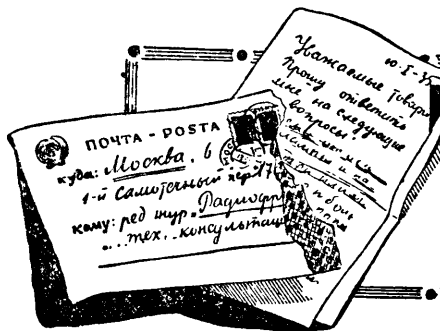 ПОЧТА - POSTA
куда: Москва, 6
1-й Самотечный пер 17
кому: ред жур. "Радиофр
... тех. консультац
10-I-35
Уважаемые товари
Прошу ответить
мне на следующие
вопросы: